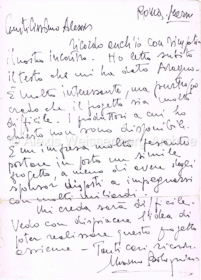 Roma,
Gentilissimo Alessio
Ricordo anch'io con simpatia
il nostro incontro. Ho letto subito
il testo che mi ha dato
È molto interessante, ma purtroppo
credo che il progetto sia molto
difficile. I produttori a cui ho
chiesto non sono disponibili.
È un'impresa molto pesante
portare in porto un simile
progetto, a meno di avere degli
sponsor disposti a impegnarsi
con molti miliardi!
Mi creda sarà difficile.
Vedo con dispiacere l'idea di
poter realizzare questo progetto
assieme - Tanti cari ricordi
Mauro Bolognini